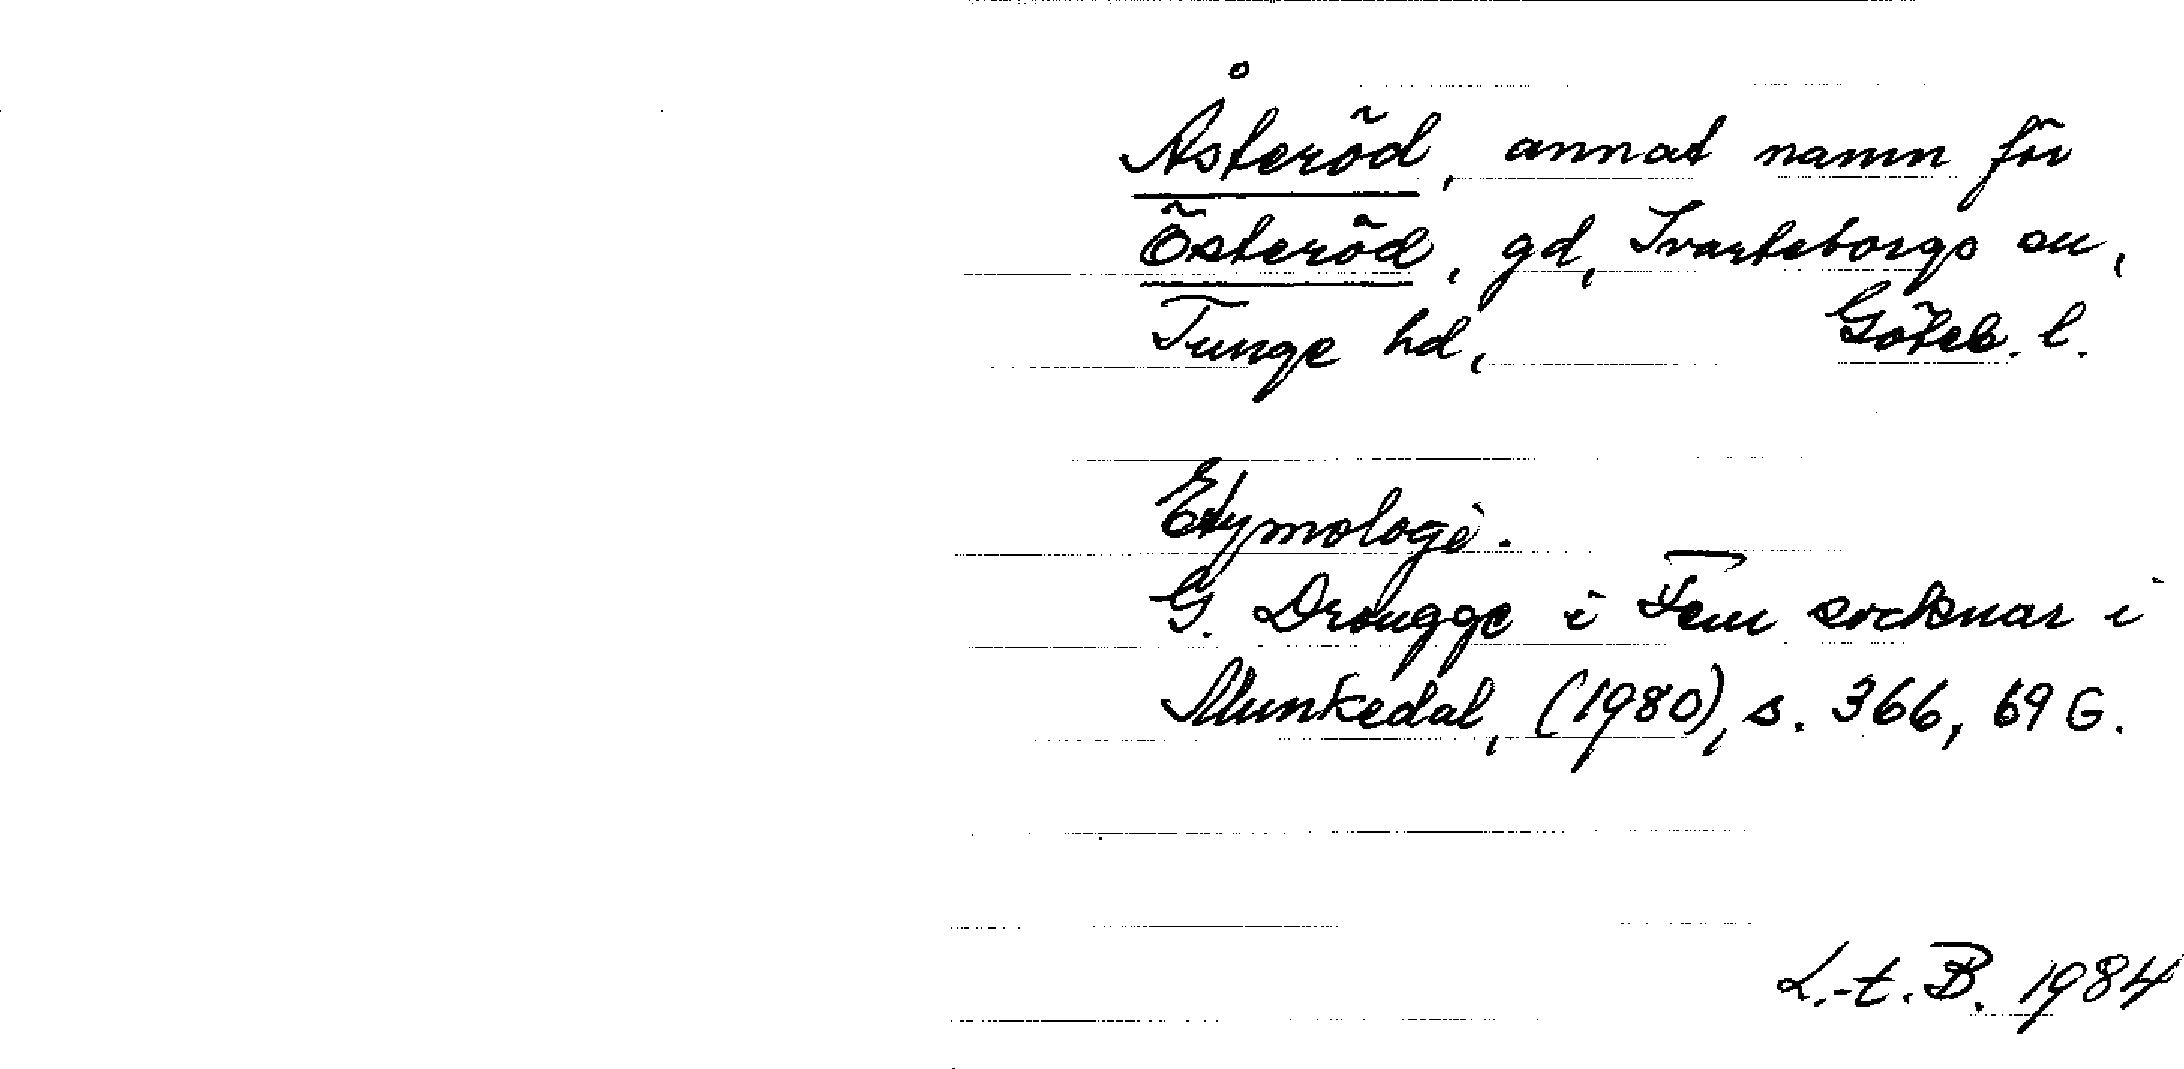 Åsteröd, annat namn för
Österöd, gd, Svarteborgs sn,
Tunge hd, Göteb. l.
Etymologi.
G. Drougge i Fem socknar i
Munkedal, (1980), s. 366, 69 G.
L.-t. B. 1984